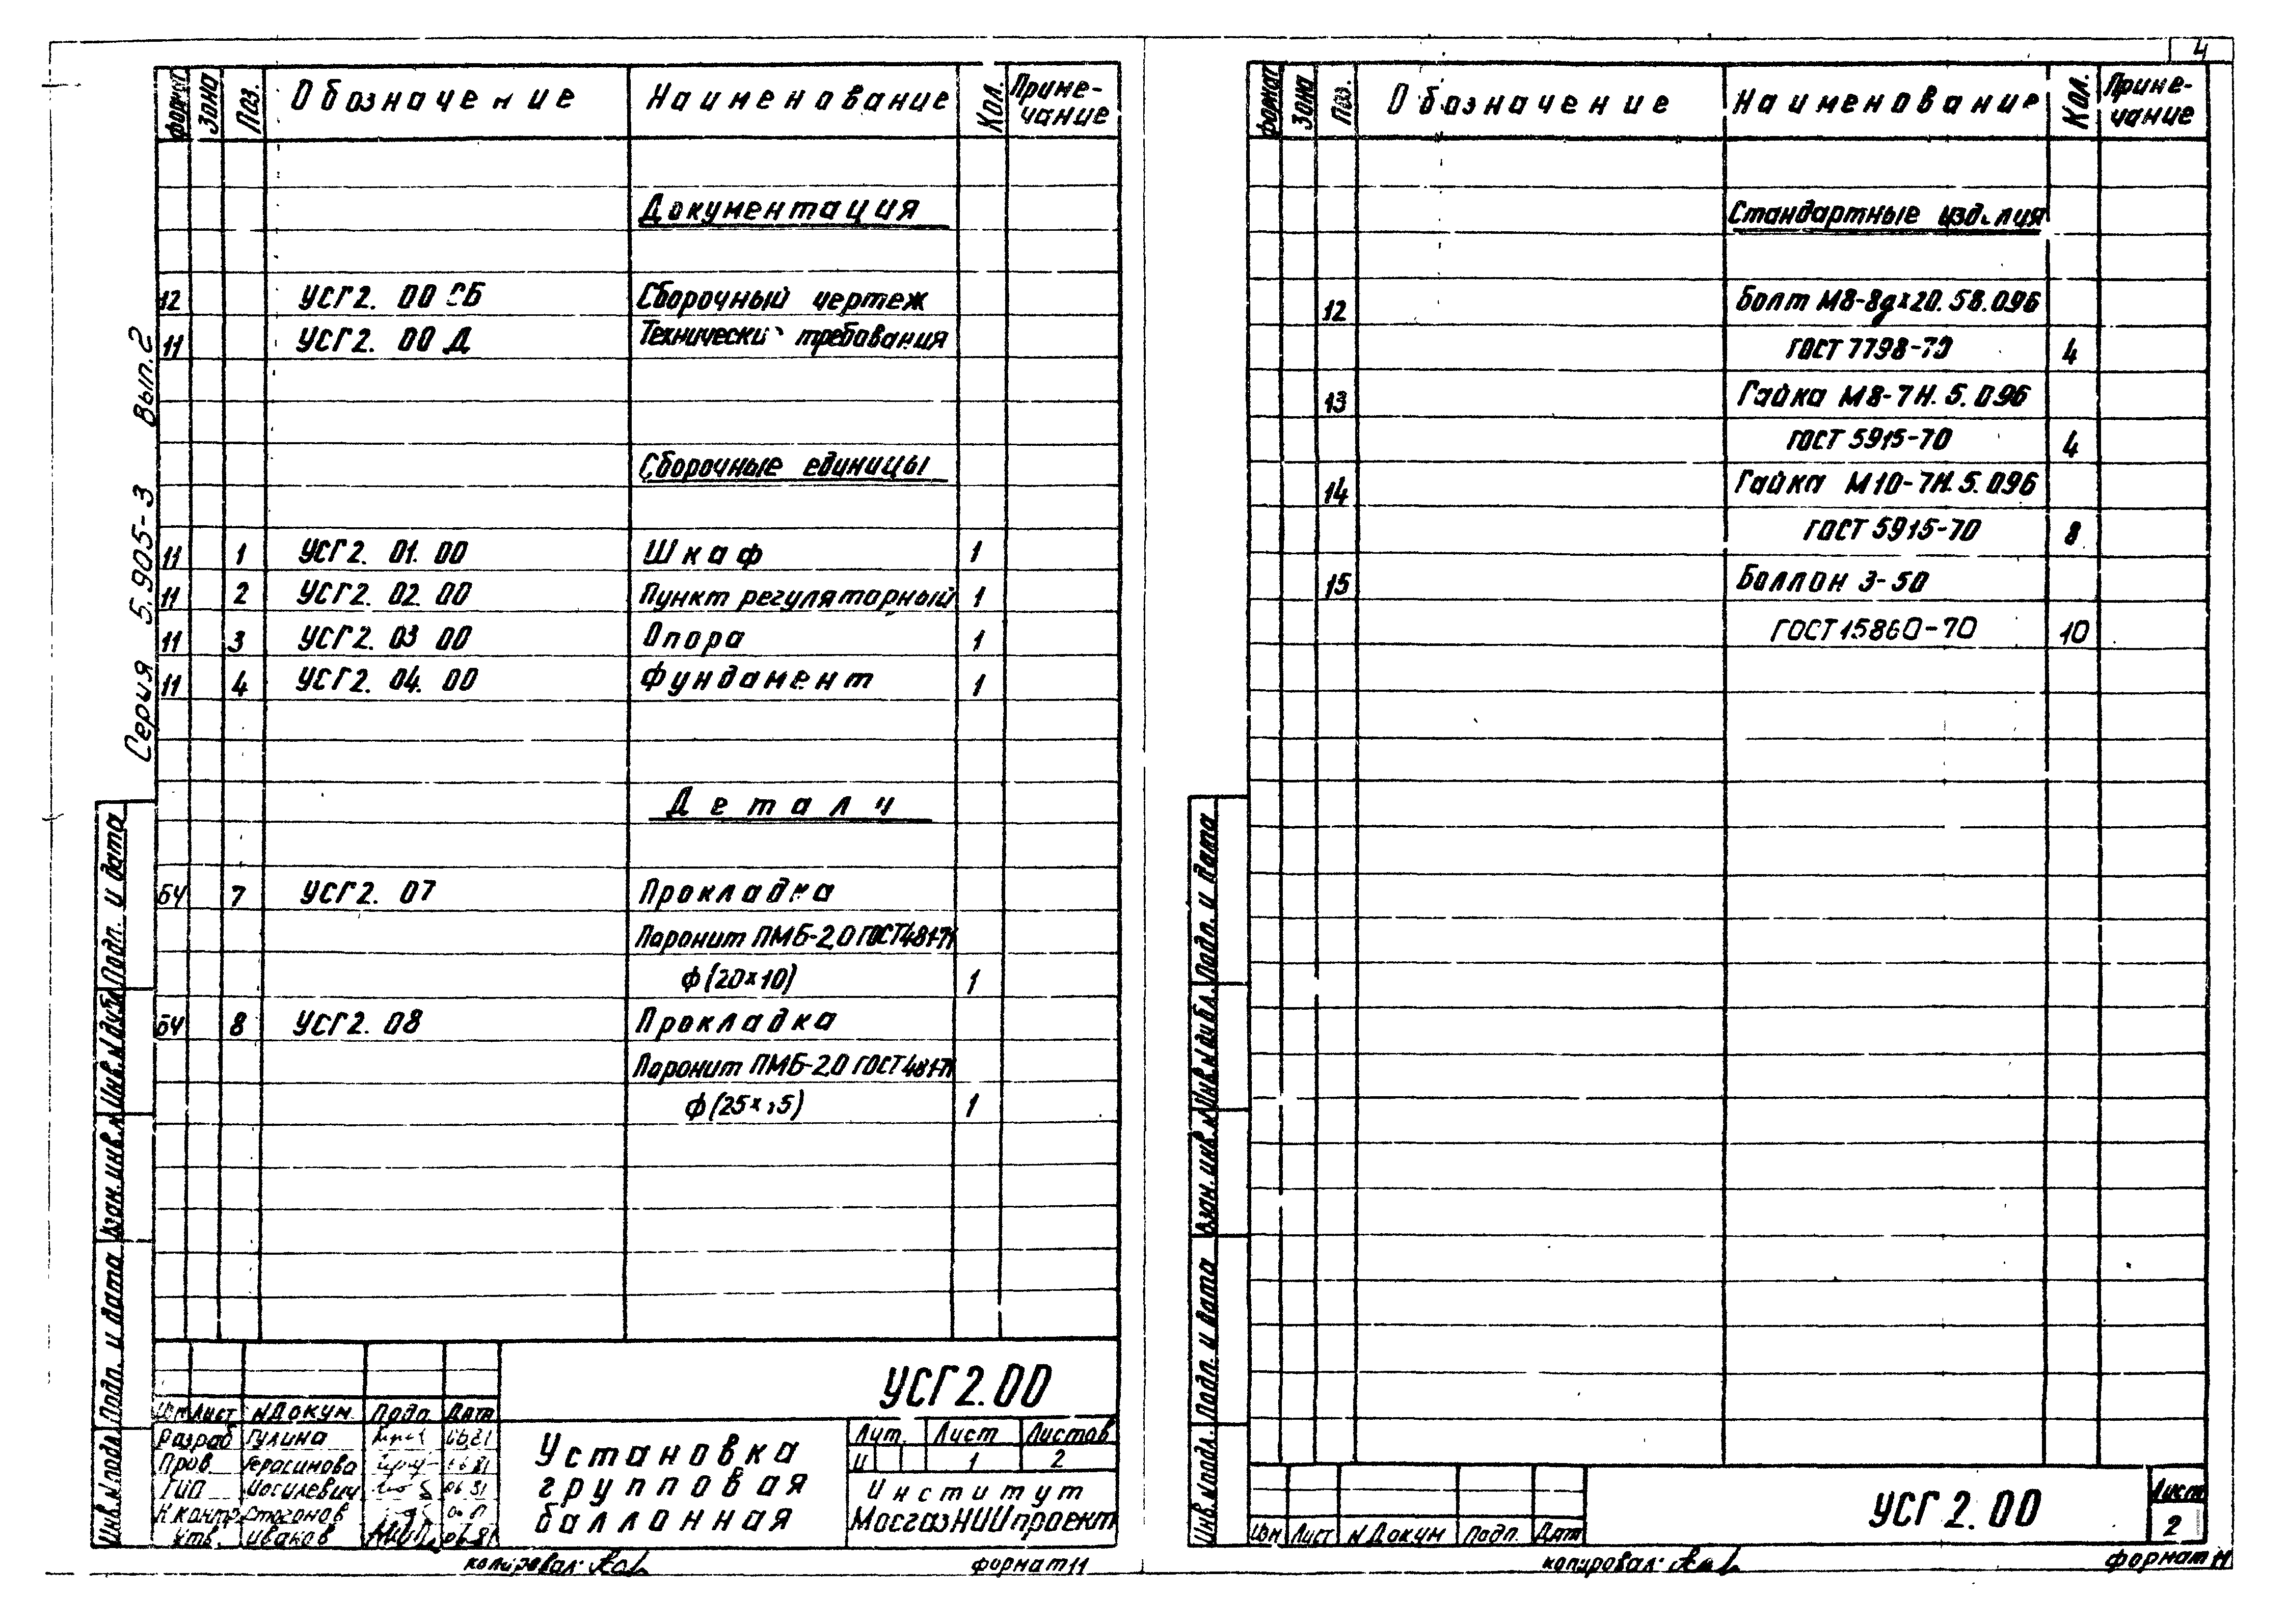 4
Серия 5.905-3 Вып.2
Формат Зона Поз. Обозначение Наименование Кол. Приме-
чание
Документация
12 УСГ2. 00 СБ Сборочный чертеж
11 УСГ2. 00 Д требования
Сборочные единицы
11 1 УСГ2. 01. 00 Шкаф 1
11 2 УСГ2. 02. 00 Пункт регуляторный 1
11 3 УСГ2. 03 00 Опора 1
11 4 УСГ2. 04. 00 Фундамент 1
Детали
БЧ 7 УСГ2. 07 Прокладка
Паронит ПМБ-2,0 ГОСТ 481-71
ф(20×10) 1
БЧ 8 УСГ2. 08 Прокладка
Паронит ПМБ-2,0 ГОСТ 481-71
1
Инв.№подл. Подп. и дата Взам.инв.№ Инв.№дубл. Подп. и дата
УСГ2.00
Изм Лист №Докум. Подп. Дата
Разраб Гулина
Пров. Герасимова
ГИП
Н.контр.
Утв. Иванов 06.81
Установка
групповая
баллонная
Лит. Лист Листов
И 1 2
Институт
МосгазНИИпроект
копировал:
формат 11
Формат Зона Поз. Обозначение Наименование Кол. Приме-
чание
Стандартные изделия
12 Болт М8-8g×20.58.096
ГОСТ 7798-70 4
13 Гайка М8-7Н.5.096
ГОСТ 5915-70 4
14 Гайка М10-7Н.5.096
ГОСТ 5915-70 8
15 Баллон 3-50
ГОСТ 15860-70 10
Инв.№подл. Подп. и дата Взам.инв.№ Инв.№дубл. Подп. и дата
Изм Лист №Докум Подп. Дата
УСГ2.00
Лист
2
копировал:
формат 11